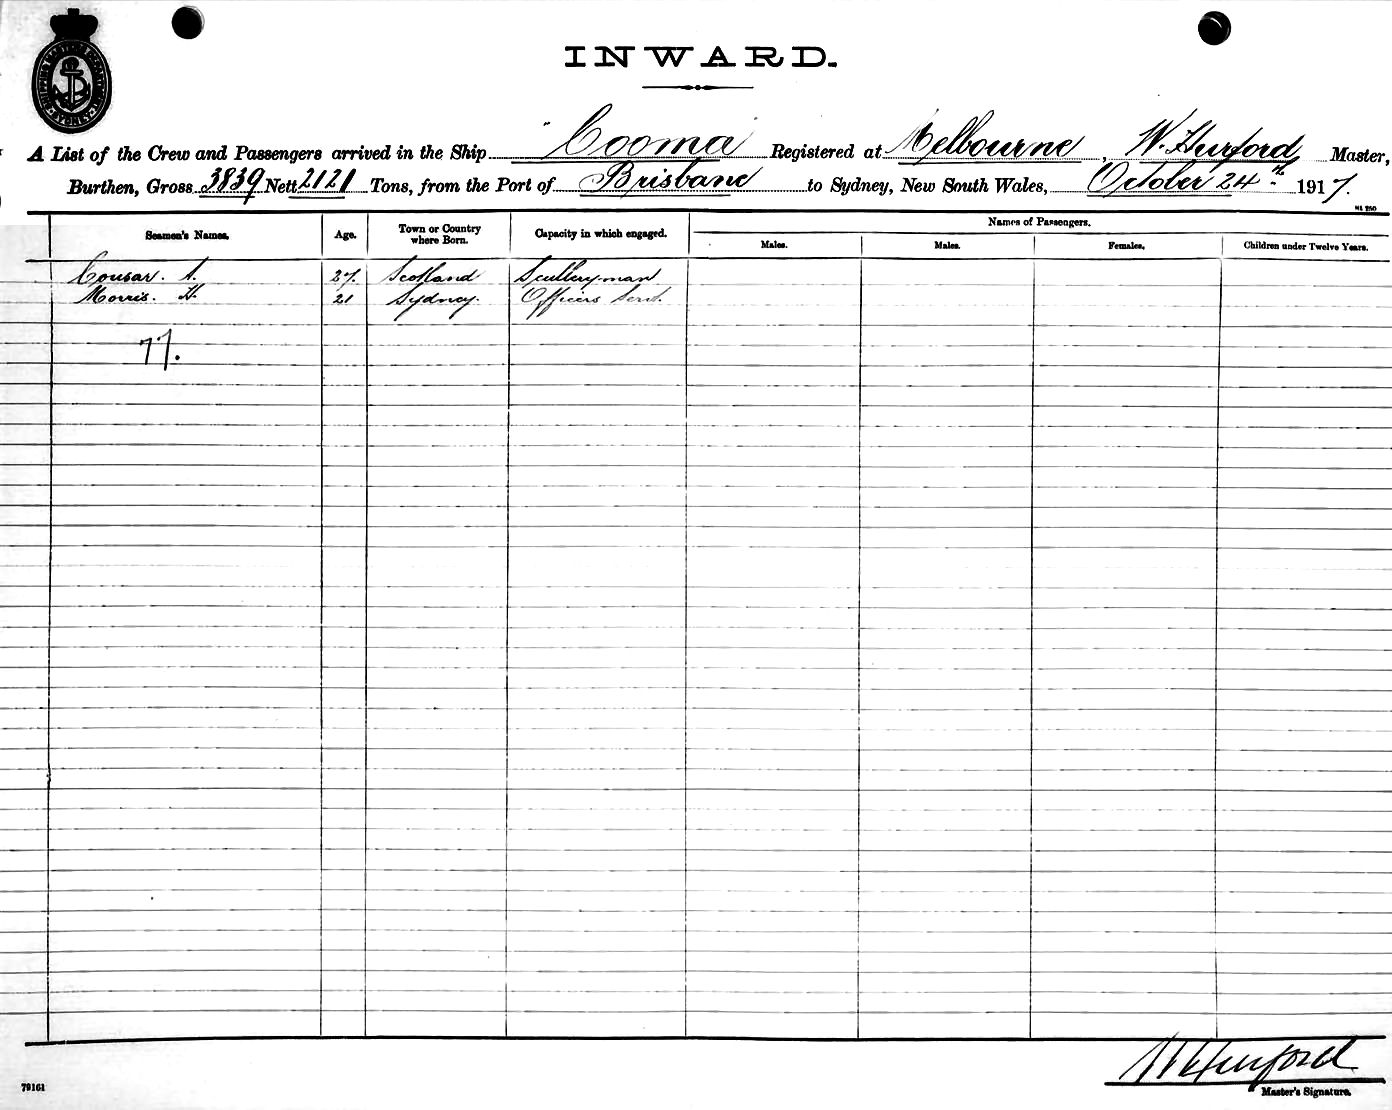 SHIPPING MASTER'S DEPARTMENT SYDNEY
INWARD.
A List of the Crew and Passengers arrived in the Ship "Cooma" Registered at Melbourne, W. Hurford Master,
Burthen, Gross 3839 Nett 2121 Tons, from the Port of Brisbane to Sydney, New South Wales, October 24th 1917.
Seamen's Names. Age. Town or Country where Born. Capacity in which engaged. Names of Passengers.
Males. Males. Females. Children under Twelve Years.
Cousar. A. 27. Scotland Sculleryman
Morris. H. 21 Sydney. Officers Servt.
77.
W Hurford
Master's Signature.
79161